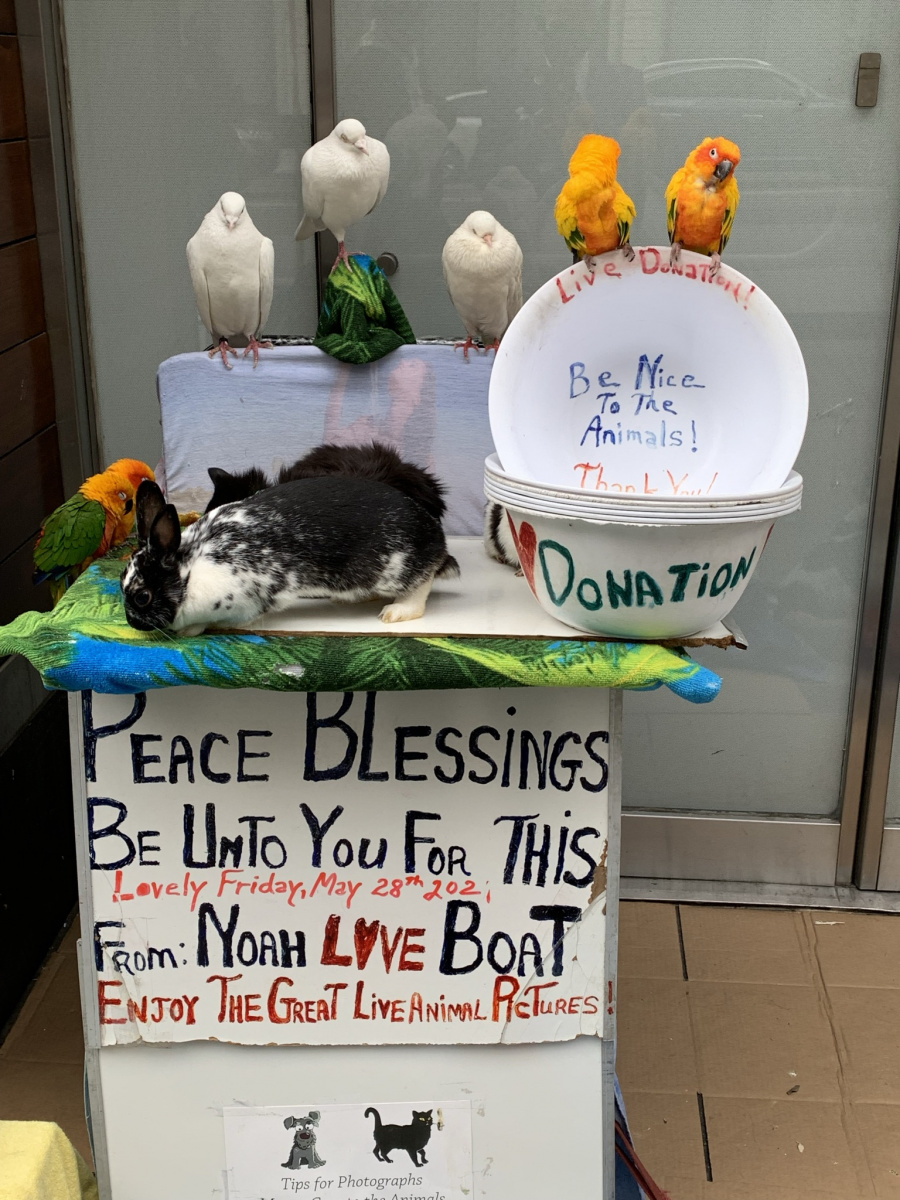 Live Donation!
Be Nice
To The
Animals!
Thank You!
DONATION
PEACE BLESSINGS
BE UNTO YOU FOR THIS
Lovely Friday, May 28th 202
FROM: NOAH LOVE BOAT
ENJOY THE GREAT LIVE ANIMAL PICTURES!
Tips for Photographs
the Animals